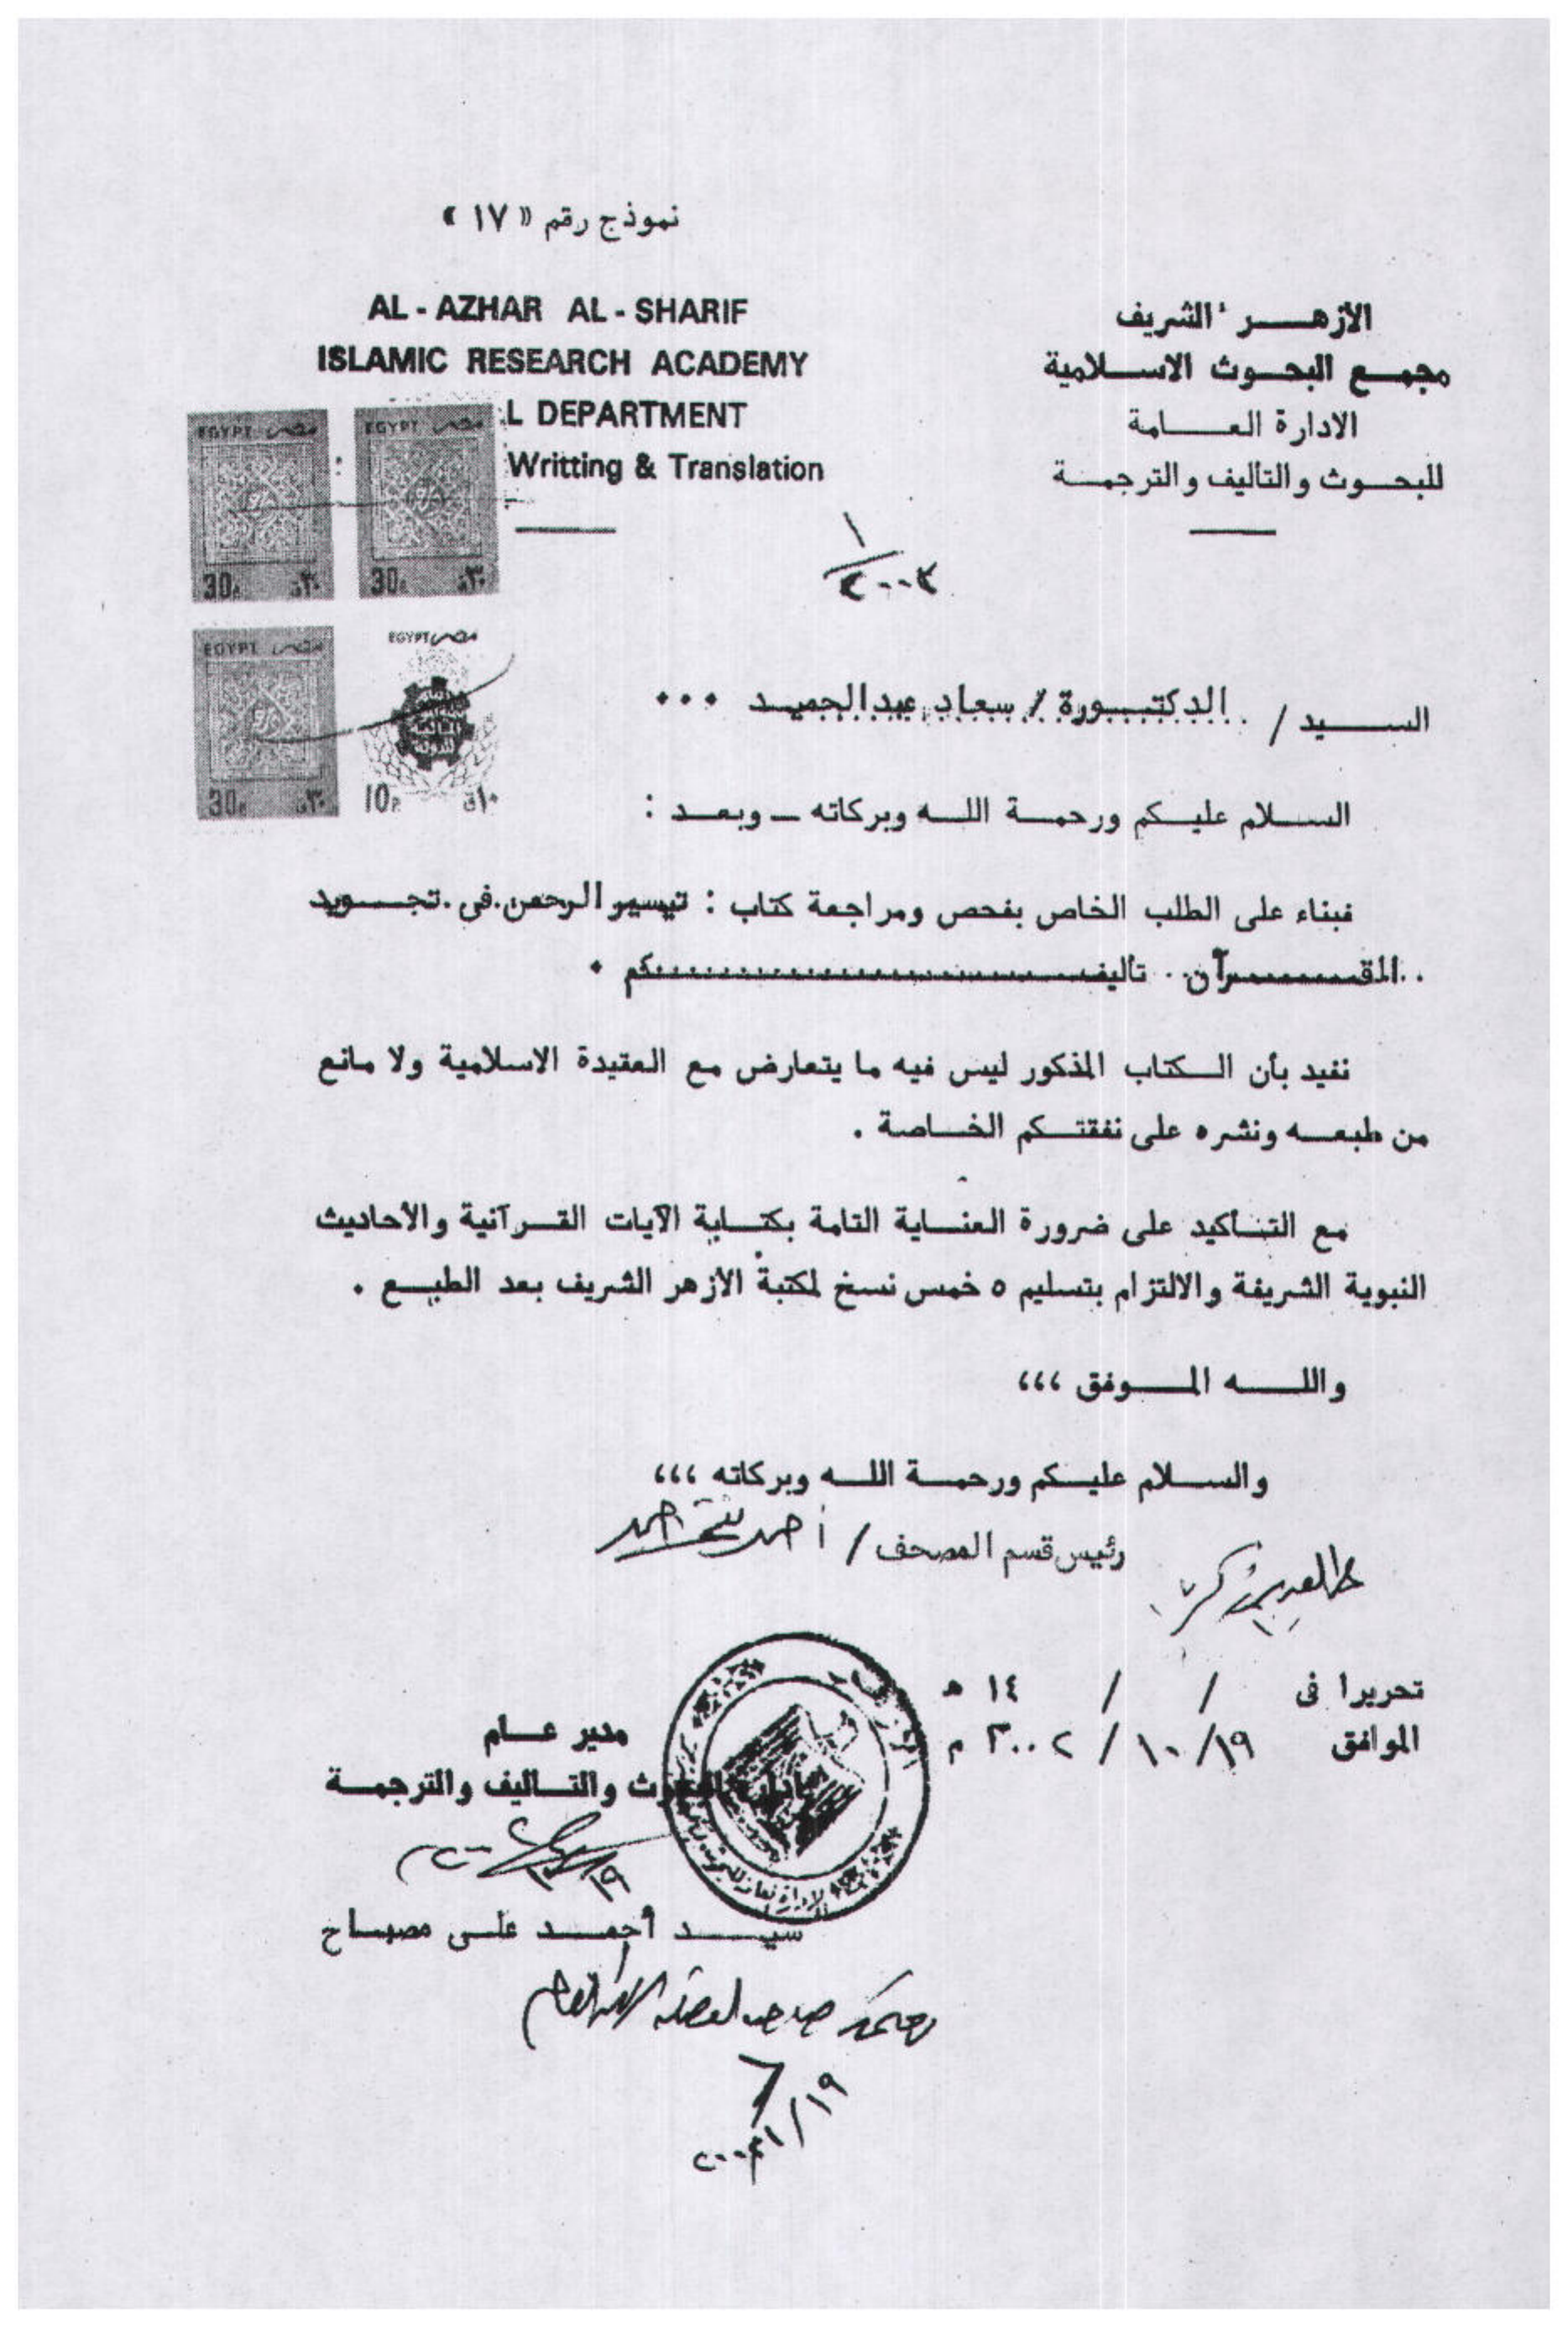 نموذج رقم « ١٧ »
الأزهـــر الشريف
مجمـع البحـوث الاسـلامية
الادارة العـــامة
للبحـوث والتأليف والترجمـة
AL - AZHAR AL - SHARIF
ISLAMIC RESEARCH ACADEMY
L DEPARTMENT
Writting & Translation
EGYPT مصر
30 ٣٠
EGYPT مصر
30 ٣٠
EGYPT مصر
30 ٣٠
EGYPT مصر
10 ١٠
الســـيد / الدكتــورة / سعاد عبدالحميـد ...
السـلام عليـكم ورحمـة اللـه وبركاته ــ وبعـد :
فبناء على الطلب الخاص بفحص ومراجعة كتاب : تيسير الرحمن في تجـويد
القــــرآن تأليفــــــــكم .
نفيد بأن الـكتاب المذكور ليس فيه ما يتعارض مع العقيدة الاسلامية ولا مانع
من طبعـه ونشره على نفقتـكم الخـاصة .
مع التـأكيد على ضرورة العنـاية التامة بكتـابة الآيات القـرآنية والأحاديث
النبوية الشريفة والالتزام بتسليم ٥ خمس نسخ لمكتبة الأزهر الشريف بعد الطبـع .
واللـــه المــوفق ،،،
والسـلام عليـكم ورحمـة اللـه وبركاته ،،،
رئيس قسم المصحف / أحمد
تحريرا فى / / ١٤ هـ
الموافق ١٩ / ١٠ / ٢٠٠٢ م
مدير عــام
والتـأليف والترجمـة
سيـــد أحمـــد على مصبـاح